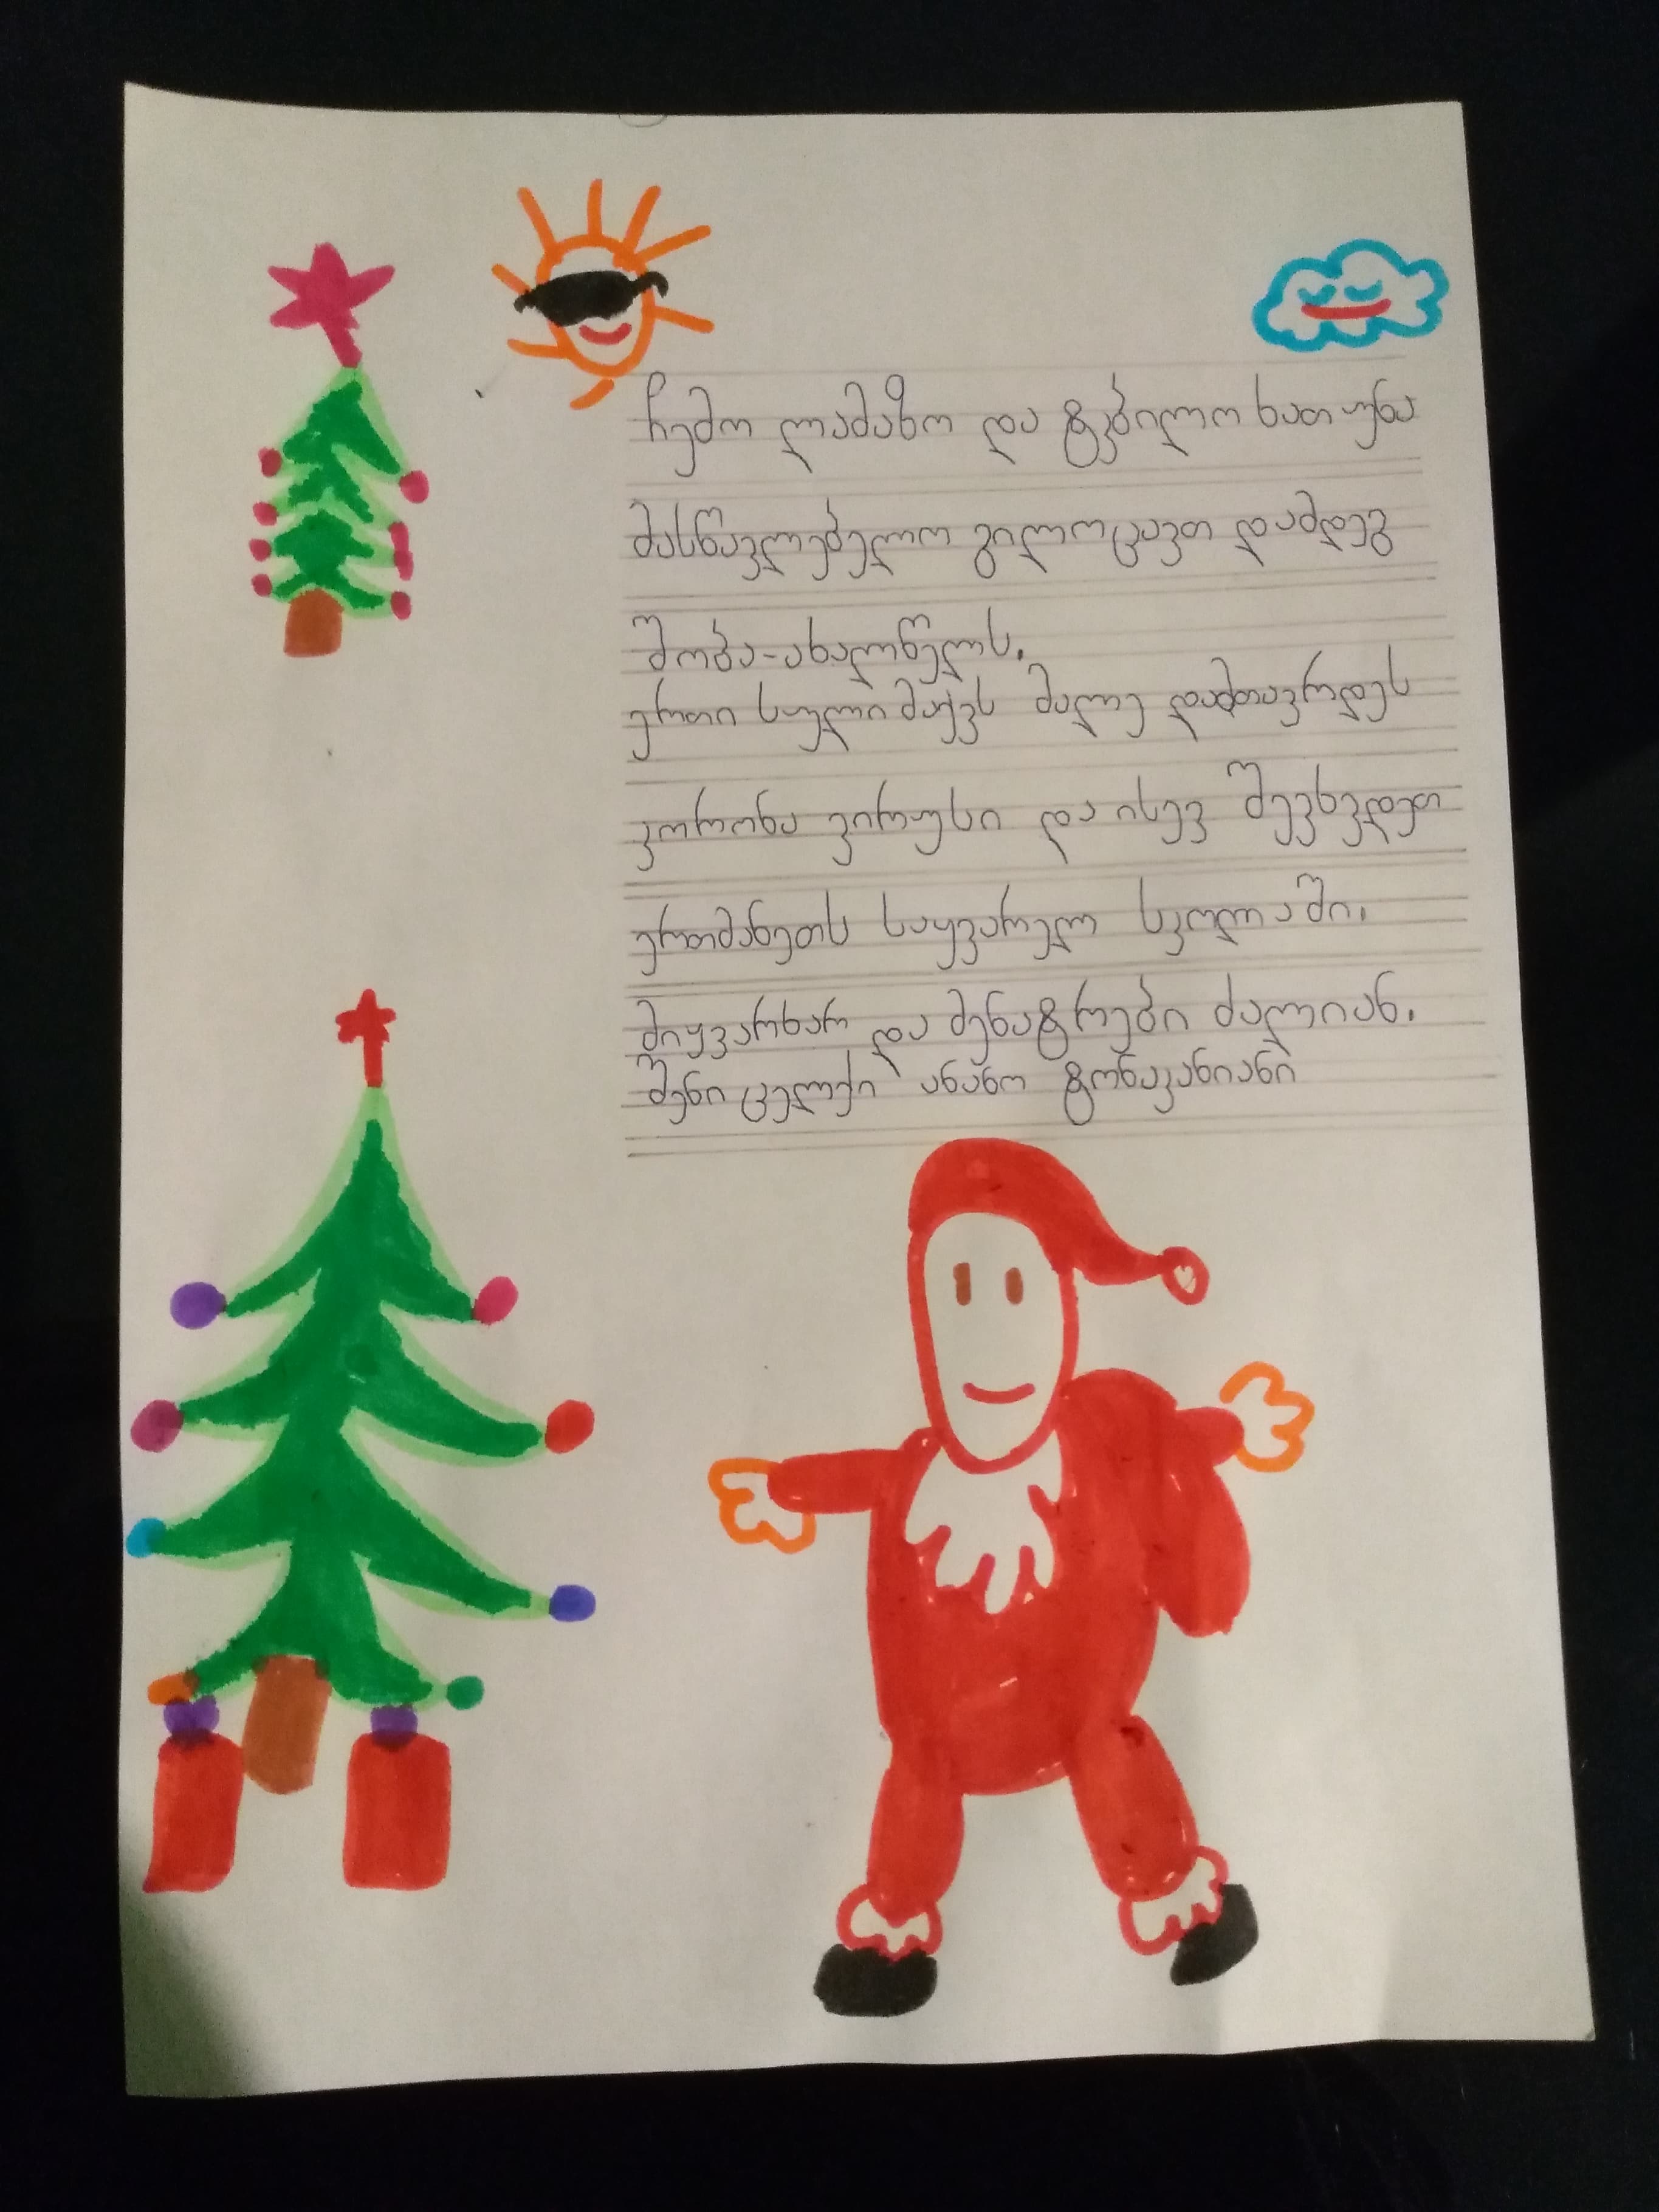 ჩემო ლამაზო და ტკბილო ხათუნა
მასწავლებელო გილოცავთ დამდეგ
შობა-ახალწელს.
ერთი სული მაქვს მალე დამთავრდეს
კორონა ვირუსი და ისევ შევხვდეთ
ერთმანეთს საყვარელ სკოლაში.
მიყვარხარ და მენატრები ძალიან.
შენი ცელქი ანანო ტონაკანიანი